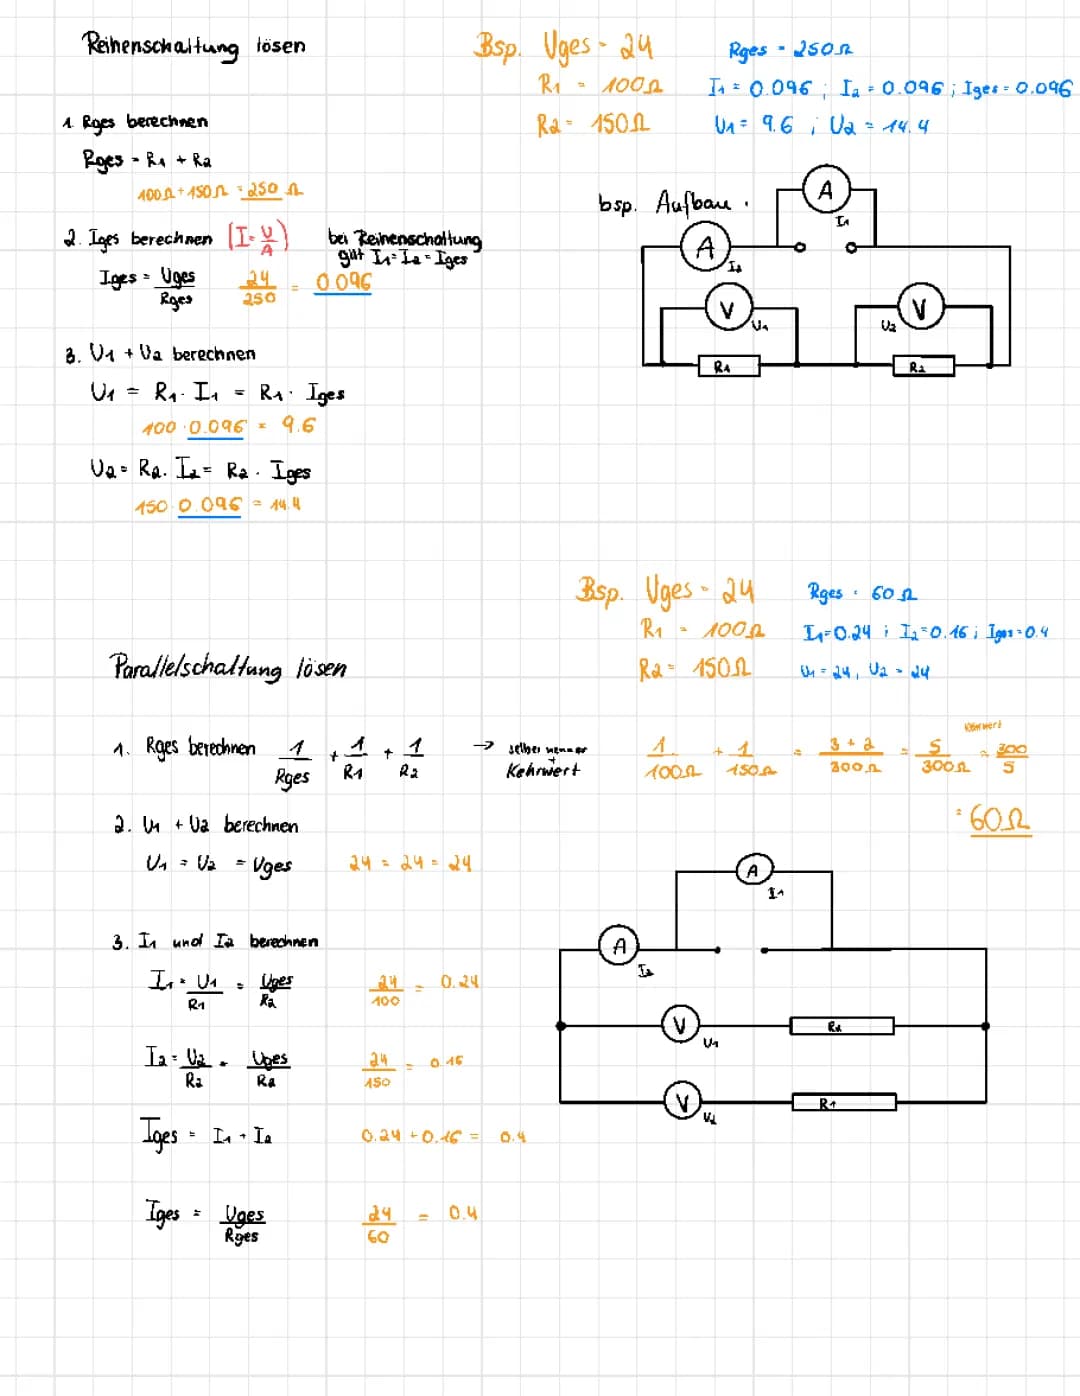 Reihenschaltung lösen
Bsp. Uges = 24
R1 = 100Ω
R2 = 150Ω
Rges = 250Ω
I1 = 0.096 ; I2 = 0.096 ; Iges = 0.096
U1 = 9.6 ; U2 = 14.4
1. Rges berechnen
Rges = R1 + R2
100Ω + 150Ω = 250 Ω
2. Iges berechnen (I = U/A)
bei Reihenschaltung
gilt I1 = I2 = Iges
Iges = Uges/Rges 24/250 = 0.096
3. U1 + U2 berechnen
U1 = R1 · I1 = R1 · Iges
100 · 0.096 = 9.6
U2 = R2 · I2 = R2 · Iges
150 · 0.096 = 14.4
bsp. Aufbau
A
I1
A
I2
V
U1
V
U2
R1
R2
Bsp. Uges = 24
R1 = 100Ω
R2 = 150Ω
Rges = 60Ω
I1 = 0.24 ; I2 = 0.16 ; Iges = 0.4
U1 = 24, U2 = 24
Parallelschaltung lösen
1. Rges berechnen 1/Rges + 1/R1 + 1/R2
→ selber nenner
+
Kehrwert
Kehrwert
1/100Ω + 1/150Ω = 3+2/300Ω = 5/300Ω = 300/5
= 60Ω
2. U1 + U2 berechnen
U1 = U2 = Uges 24 = 24 = 24
3. I1 und I2 berechnen
I1 = U1/R1 = Uges/R2 24/100 = 0.24
I2 = U2/R2 = Uges/R2 24/150 = 0.16
Iges = I1 + I2 0.24 + 0.16 = 0.4
Iges = Uges/Rges 24/60 = 0.4
A
I1
A
I2
V
U1
V
U2
R1